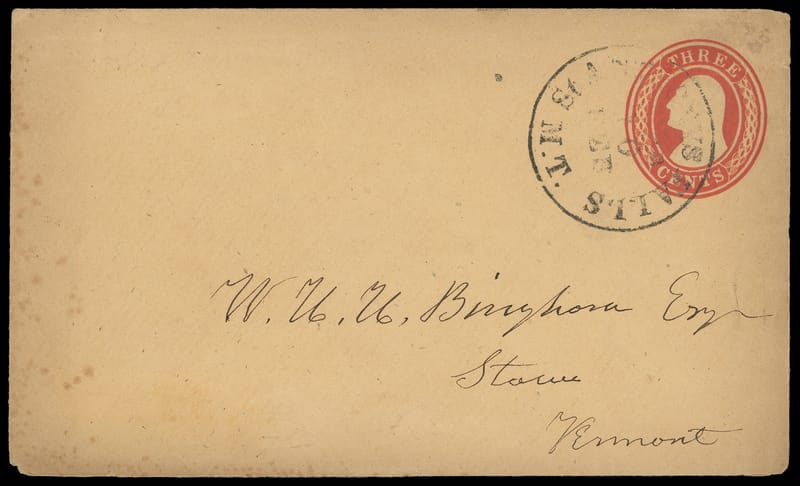 THREE
CENTS
FEB
W. H. H. Bingham Esq
Stowe
Vermont